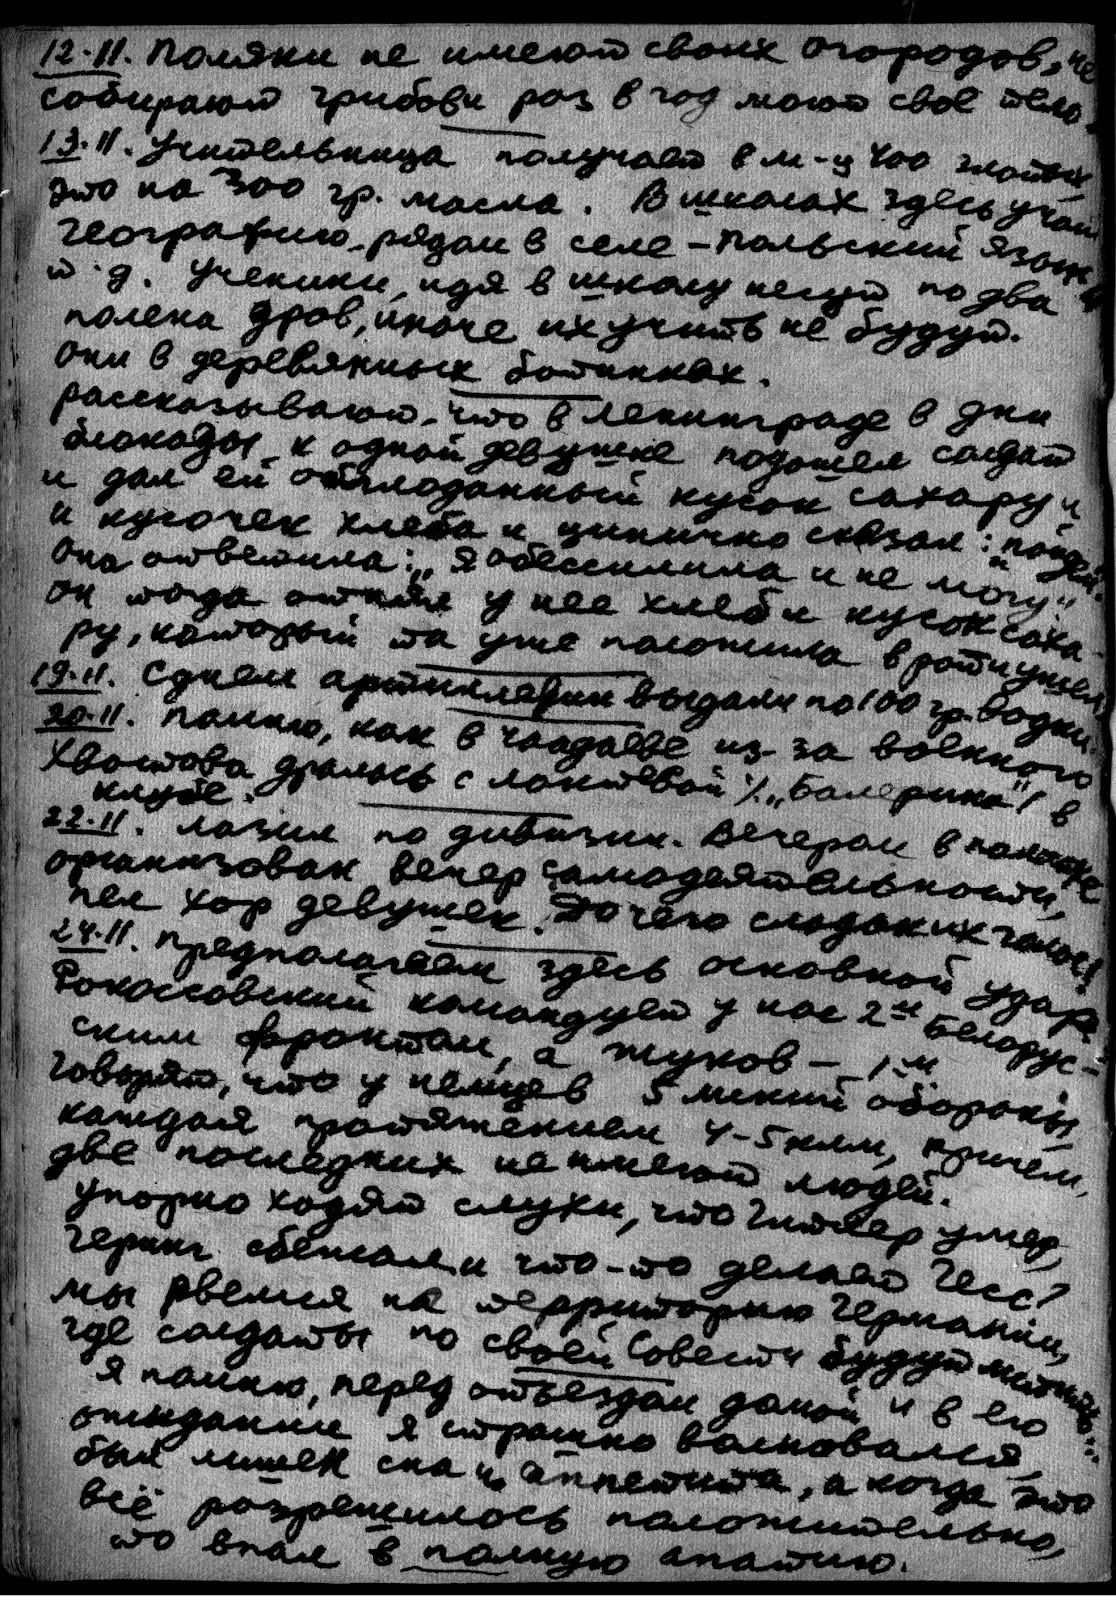 12·11. Поляки не имеют своих огородов, не
собирают грибов и раз в год моют своё тело.
13·11. Учительница получает в м-ц 400 злотых,
это на 300 гр. масла. В школах здесь учат
географию, рядом в селе – польский язык и
т.д. Ученики, идя в школу несут по два
полена дров, иначе их учить не будут.
Они в деревянных ботинках.
рассказывают, что в Ленинграде в дни
блокады к одной девушке подошел солдат
и дал ей обглоданный кусок сахару и
и кусочек хлеба и цинично сказал: „пойдем".
Она ответила: „Я обессилила и не могу"
Он тогда отнял у нее хлеб и кусок саха-
ру, который та уже положила в рот и ушел.
19·11. С днем артиллерии выдали по 100 гр. водки.
20·11. Помню, как в Чаадаевке из-за военного
Хвостова дрались с Локтевой /„Балерина"/ в
клубе.
22·11. Лазил по дивизии. Вечером в палатке
организован вечер самодеятельности,
пел хор девушек. До чего сладок их голос!
24·11. Предполагаем здесь основной удар.
Рокоссовский командует у нас 2м Белорус-
ским фронтом, а Жуков – 1м
Говорят, что у немцев 5 линий обороны,
каждая протяжением 4-5 клм, причем,
две последних не имеют людей.
Упорно ходят слухи, что Гитлер умер,
Геринг сбежал и что-то делает Гесс?
Мы рвемся на территорию Германии,
где солдаты по своей Совести будут мстить...
Я помню, перед отъездом домой и в его
ожидании я страшно волновался,
был лишен сна и аппетита, а когда это
всё разрешилось положительно,
то впал в полную апатию.